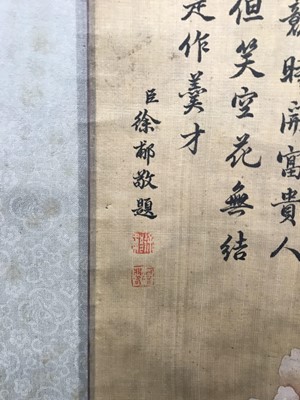 競時屏富貴人
但笑空花無結
是作羹才
臣徐郙敬題